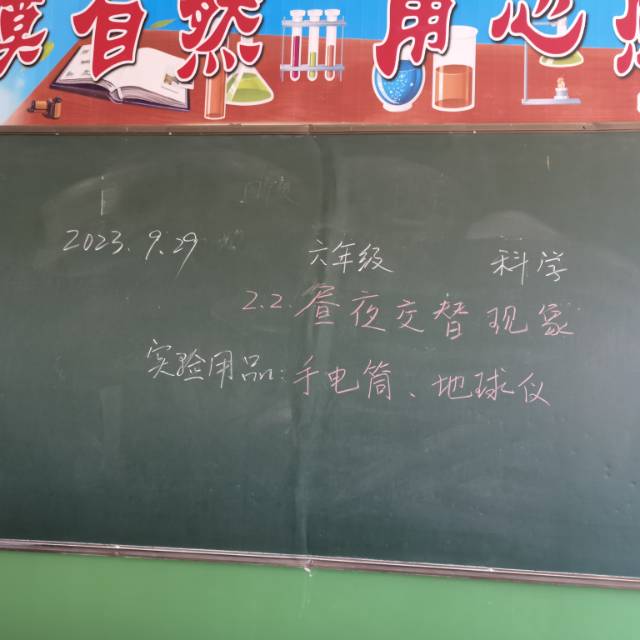 自然 用心
2023.9.29 六年级 科学
2.2.昼夜交替现象
实验用品:手电筒、地球仪